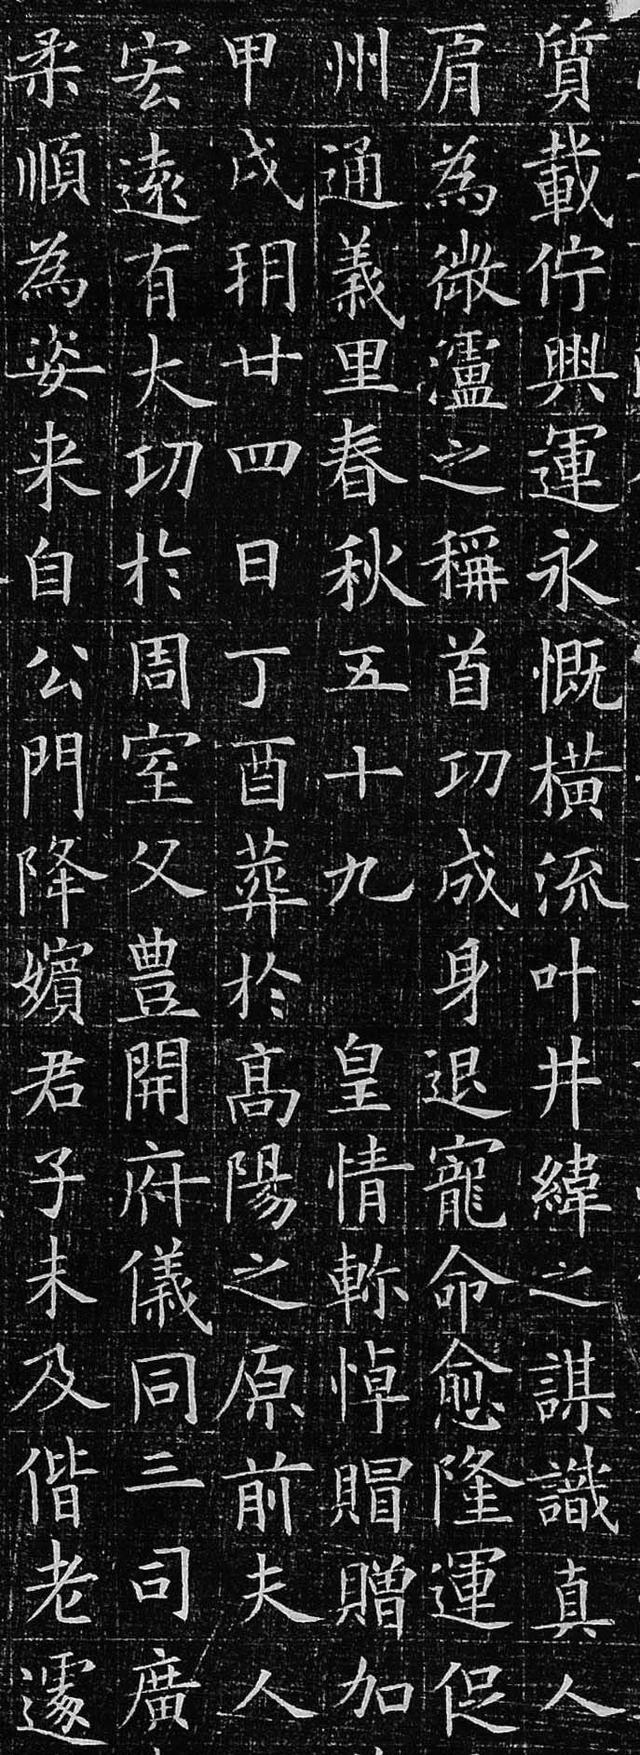 質載佇興運永慨橫流叶井緯之謀識真人
為微瀘之稱首功成身退寵命愈隆運促
州通義里春秋五十九 皇情軫悼賵贈加
甲戌玥廿四日丁酉葬於高陽之原前夫人
宏遠有大功於周室父豊開府儀同三司廣
柔順為姿来自公門降嬪君子未及偕老遽